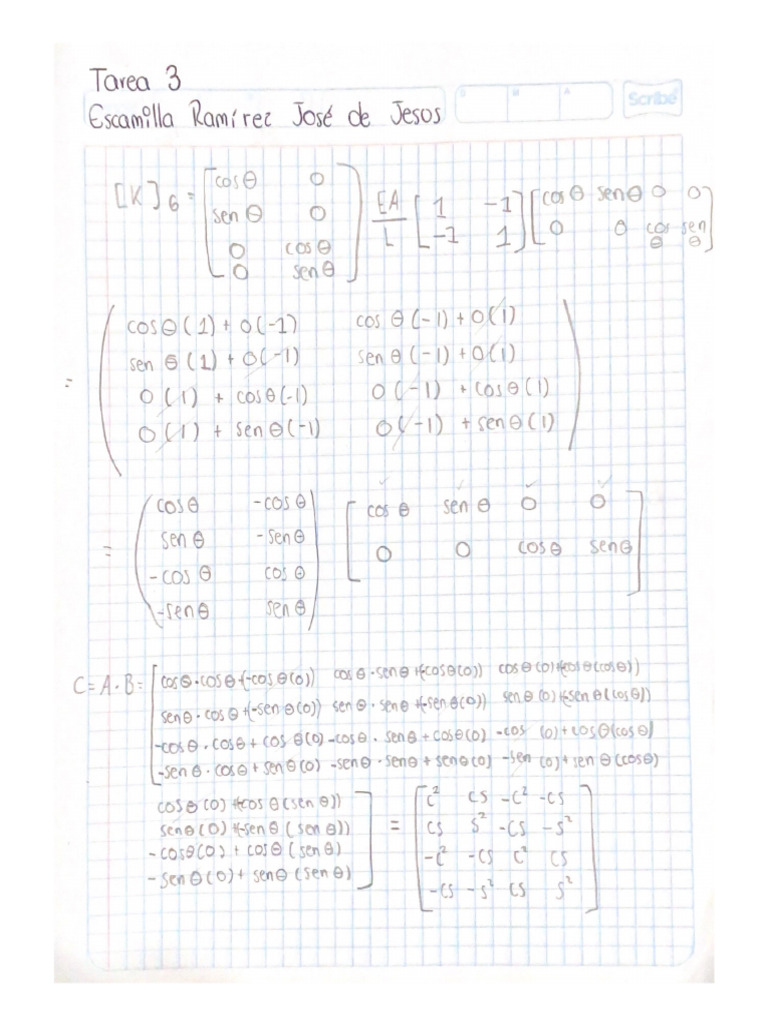 Tarea 3
Escamilla Ramírez José de Jesos
Scribe
[K]G = [cosθ 0; senθ 0; 0 cosθ; 0 senθ] EA/L [1 -1; -1 1] [cosθ senθ 0 0; 0 0 cosθ senθ]
cosθ(1)+0(-1) cosθ(-1)+0(1)
senθ(1)+0(-1) senθ(-1)+0(1)
= 0(1) + cosθ(-1) 0(-1) + cosθ(1)
0(1) + senθ(-1) 0(-1) + senθ(1)
cosθ -cosθ cosθ senθ 0 0
senθ -senθ
= -cosθ cosθ 0 0 cosθ senθ
-senθ senθ
C=A·B= cosθ·cosθ+(-cosθ(0)) cosθ·senθ+(-cosθ(0)) cosθ(0)+(-cosθ(cosθ))
senθ·cosθ+(-senθ(0)) senθ·senθ+(-senθ(0)) senθ(0)+(-senθ(cosθ))
-cosθ·cosθ+cosθ(0) -cosθ·senθ+cosθ(0) -cos (0)+cosθ(cosθ)
-senθ·cosθ+senθ(0) -senθ·senθ+senθ(0) -sen (0)+senθ(cosθ)
cosθ(0)+(-cosθ(senθ)) c² cs -c² -cs
senθ(0)+(-senθ(senθ)) = cs s² -cs -s²
-cosθ(0)+cosθ(senθ) -c² -cs c² cs
-senθ(0)+senθ(senθ) -cs -s² cs s²